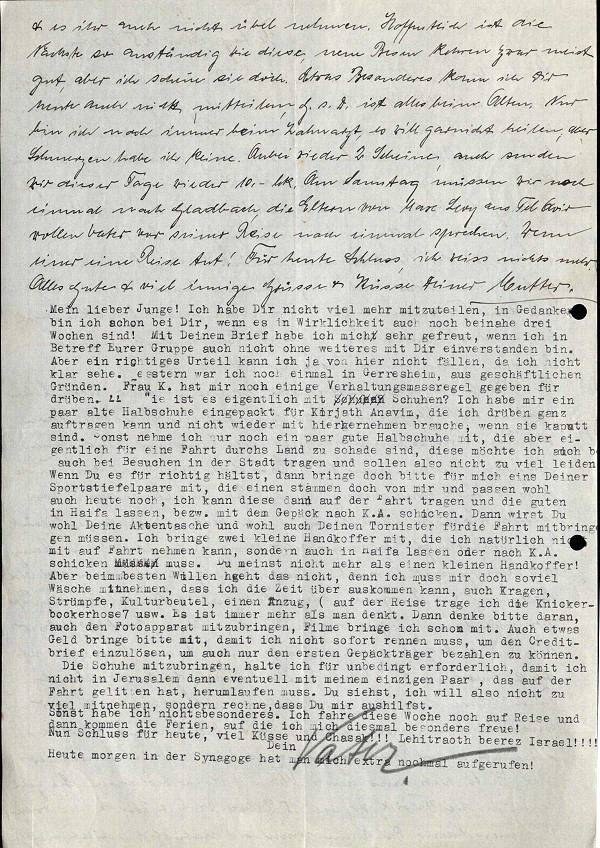 & es ihr auch nicht übel nehmen. Hoffentlich ist die
Nächste so anständig wie diese, neue Besen kehren zwar meist
gut, aber ich scheue sie doch. Etwas Besonderes kann ich Dir
heute auch nicht mitteilen, d. s. d. ist alles beim Alten. Nur
bin ich noch immer beim Zahnarzt, es will garnicht heilen, aber
Schmerzen habe ich keine. Anbei wieder 2 Scheine, auch senden
wir dieser Tage wieder 10.- Mk. Am Samstag müssen wir noch
einmal nach Gladbach, die Eltern von Marx Levy aus Tel Aviv
wollen Vater vor seiner Reise noch einmal sprechen. Wenn
einer eine Reise tut! Für heute Schluss, ich weiss nichts mehr.
Alles Gute & viel innige Grüsse & Küsse Deiner Mutter.
Mein lieber Junge! Ich habe Dir nicht viel mehr mitzuteilen, in Gedanken
bin ich schon bei Dir, wenn es in Wirklichkeit auch noch beinahe drei
Wochen sind! Mit Deinem Brief habe ich mich sehr gefreut, wenn ich in
Betreff Eurer Gruppe auch nicht ohne weiteres mit Dir einverstanden bin.
Aber ein richtiges Urteil kann ich ja von hier nicht fällen, da ich nicht
klar sehe. estern war ich noch einmal in Gerresheim, aus geschäftlichen
Gründen. Frau K. hat mir noch einige Verhaltungsmassregel gegeben für
drüben. ie ist es eigentlich mit Schuhen? Ich habe mir ein
paar alte Halbschuhe eingepackt für Kirjath Anavim, die ich drüben ganz
auftragen kann und nicht wieder mit hierhernehmen brauche, wenn sie kaputt
sind. onst nehme ich nur noch ein paar gute Halbschuhe mit, die aber ei-
gentlich für eine Fahrt durchs Land zu schade sind, diese möchte ich auch b
auch bei Besuchen in der Stadt tragen und sollen also nicht zu viel leiden
Wenn Du es für richtig hältst, dann bringe doch bitte für mich eins Deiner
Sportstiefelpaare mit, die einen stammen doch von mir und passen wohl
auch heute noch, ich kann diese dann auf der Fahrt tragen und die guten
in Haifa lassen, bezw. mit dem Gepäck nach K.A. schicken. Dann wirst Du
wohl Deine Aktentasche und wohl auch Deinen Tornister fürdie Fahrt mitbring
gen müssen. Ich bringe zwei kleine Handkoffer mit, die ich natürlich nic
mit auf Fahrt nehmen kann, sondern auch in Haifa lassen oder nach K.A.
schicken muss. Du meinst nicht mehr als einen kleinen Handkoffer!
Aber beimmbesten Willen hgeht das nicht, denn ich muss mir doch soviel
Wäsche mitnehmen, dass ich die Zeit über auskommen kann, auch Kragen,
Strümpfe, Kulturbeutel, einen Anzug, ( auf der Reise trage ich die Knicker-
bockerhose7 usw. Es ist immer mehr als man denkt. Dann denke bitte daran,
auch den Fotoapparat mitzubringen, Filme bringe ich schon mit. Auch etwas
Geld bringe bitte mit, damit ich nicht sofort rennen muss, um den Credit-
brief einzulösen, um auch nur den ersten Gepäckträger bezahlen zu können.
Die Schuhe mitzubringen, halte ich für unbedingt erforderlich, damit ich
nicht in Jerusalem dann eventuell mit meinem einzigen Paar , das auf der
Fahrt gelitten hat, herumlaufen muss. Du siehst, ich will also nicht zu
viel mitnehmen, sondern rechne,dass Du mir aushilfst.
Sonst habe ich nichtsbesonderes. Ich fahre diese Woche noch auf Reise und
dann kommen die Ferien, auf die ich mich diesmal besonders freue!
Nun Schluss für heute, viel Küsse und Chasak!!! Lehitraoth beerez Israel!!!!
Dein Vater
Heute morgen in der Synagoge hat man dich extra nochmal aufgerufen!